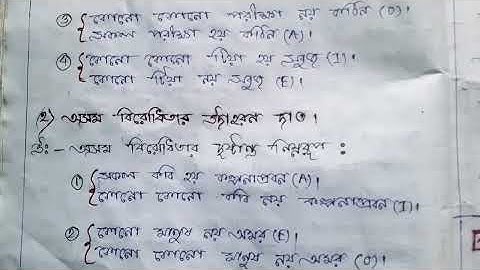 ③ { কোনো কোনো পরীক্ষা নয় কঠিন (O)।
সকল পরীক্ষা হয় কঠিন (A)।
④ { কোনো কোনো টিয়া হয় সবুজ (I)।
কোনো টিয়া নয় সবুজ (E)।
২) অসম বিরোধিতার উদাহরন দাও।
উঃ- অসম বিরোধিতার দৃষ্টান্ত নিম্নরূপ :
① { সকল কবি হয় কল্পনাপ্রবন (A)।
কোনো কোনো কবি নয় কল্পনাপ্রবন (I)।
② { কোনো মানুষ নয় অমর (E)।
কোনো কোনো মানুষ নয় অমর (O)।